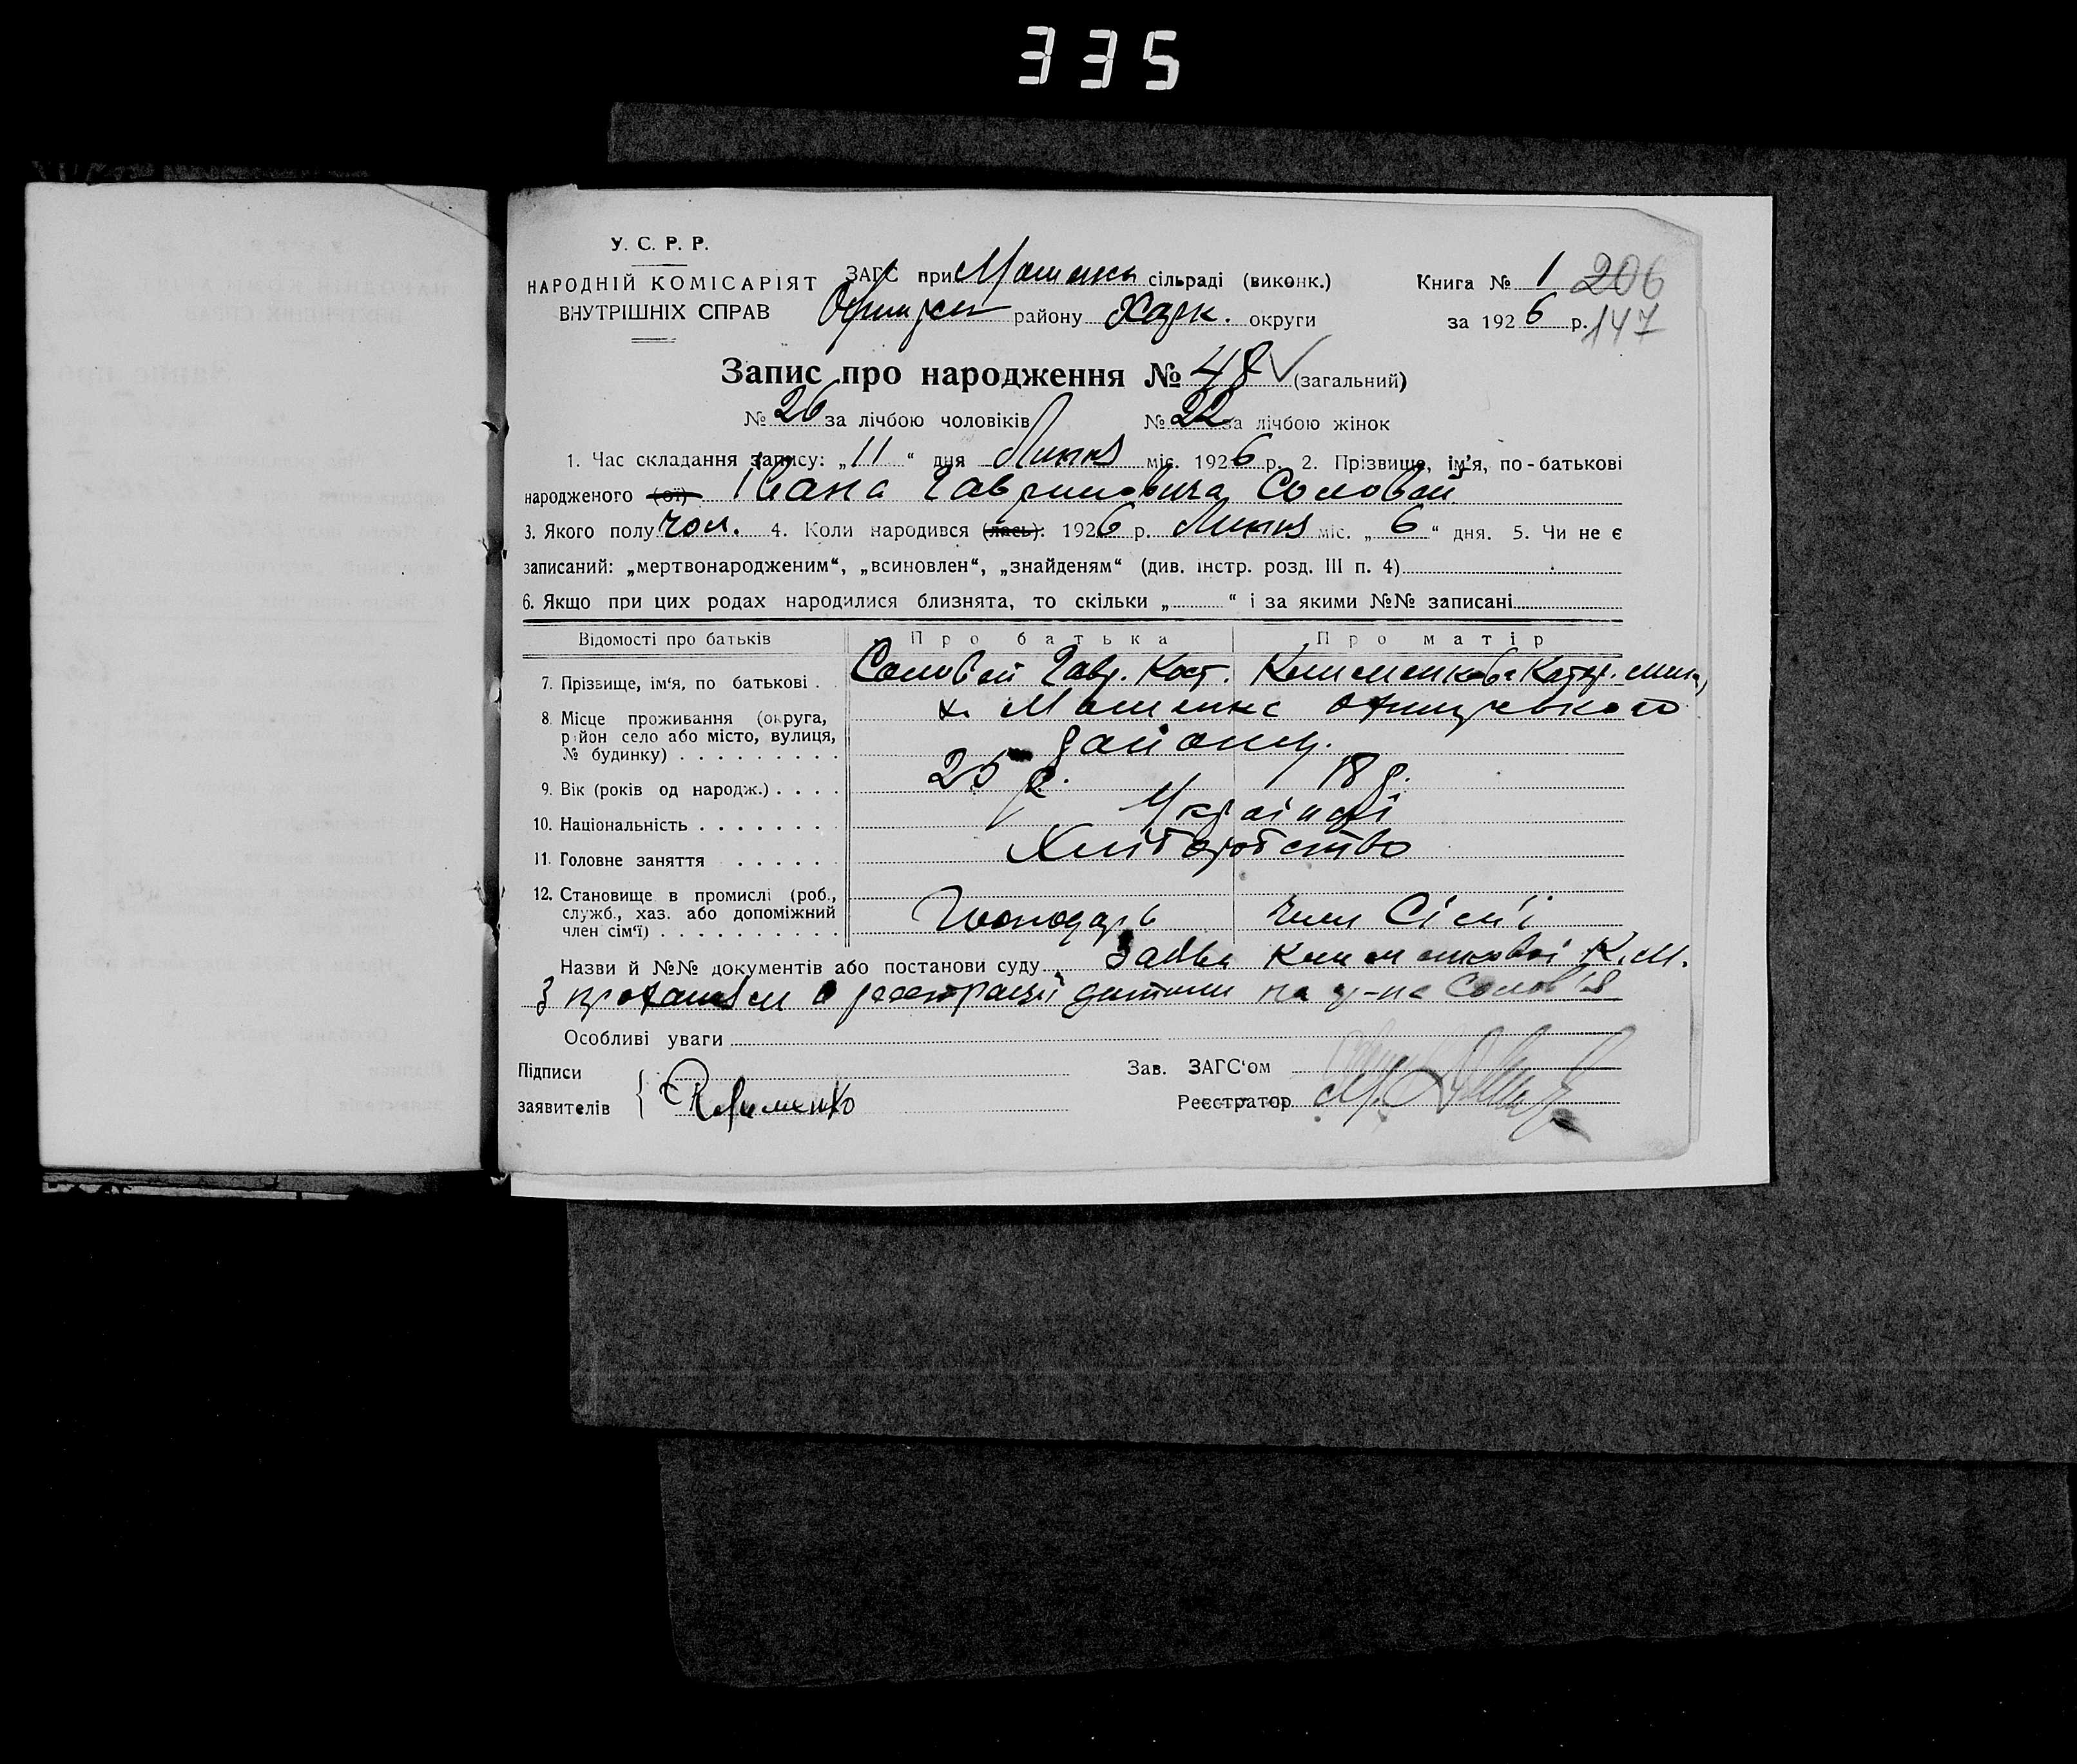 335
У. С. Р. Р.
НАРОДНІЙ КОМІСАРІЯТ
ВНУТРІШНІХ СПРАВ
ЗАГС при сільраді (виконк.)
району Харк. округи
Книга № 1 206
за 1926 р. 147
Запис про народження № 48 (загальний)
№ 26 за лічбою чоловіків № 22 за лічбою жінок
1. Час складання запису: „11“ дня Липня міс. 1926 р. 2. Прізвище, ім'я, по-батькові
народженого (ої) Івана Гавриловича Соловей
3. Якого полу чол. 4. Коли народився (лась): 1926 р. Липня міс. „6“ дня. 5. Чи не є
записаний: „мертвонародженим“, „всиновлен“, „знайденям“ (див. інстр. розд. III п. 4)
6. Якщо при цих родах народилися близнята, то скільки „ “ і за якими №№ записані
Відомості про батьків Про батька Про матір
7. Прізвище, ім'я, по батькові . Соловей Гавр. Кост. Клименкова Катер.
8. Місце проживання (округа, х.
район село або місто, вулиця, району.
№ будинку) . . . . . . . . .
9. Вік (років од народж.) . . . . 25 р. 18 р.
10. Національність . . . . . . . Українці
11. Головне заняття . . . . . . Хліборобство
12. Становище в промислі (роб.,
служб., хаз. або допоміжний
член сім'ї) . . . . . . . . . . Господарь член Сісм'і
Назви й №№ документів або постанови суду Заява Клименкової К. М.
з проханям о реєстрації дитини на гр-на Солов'я
Особливі уваги
Підписи
заявителів Клименко
Зав. ЗАГС'ом
Реєстратор